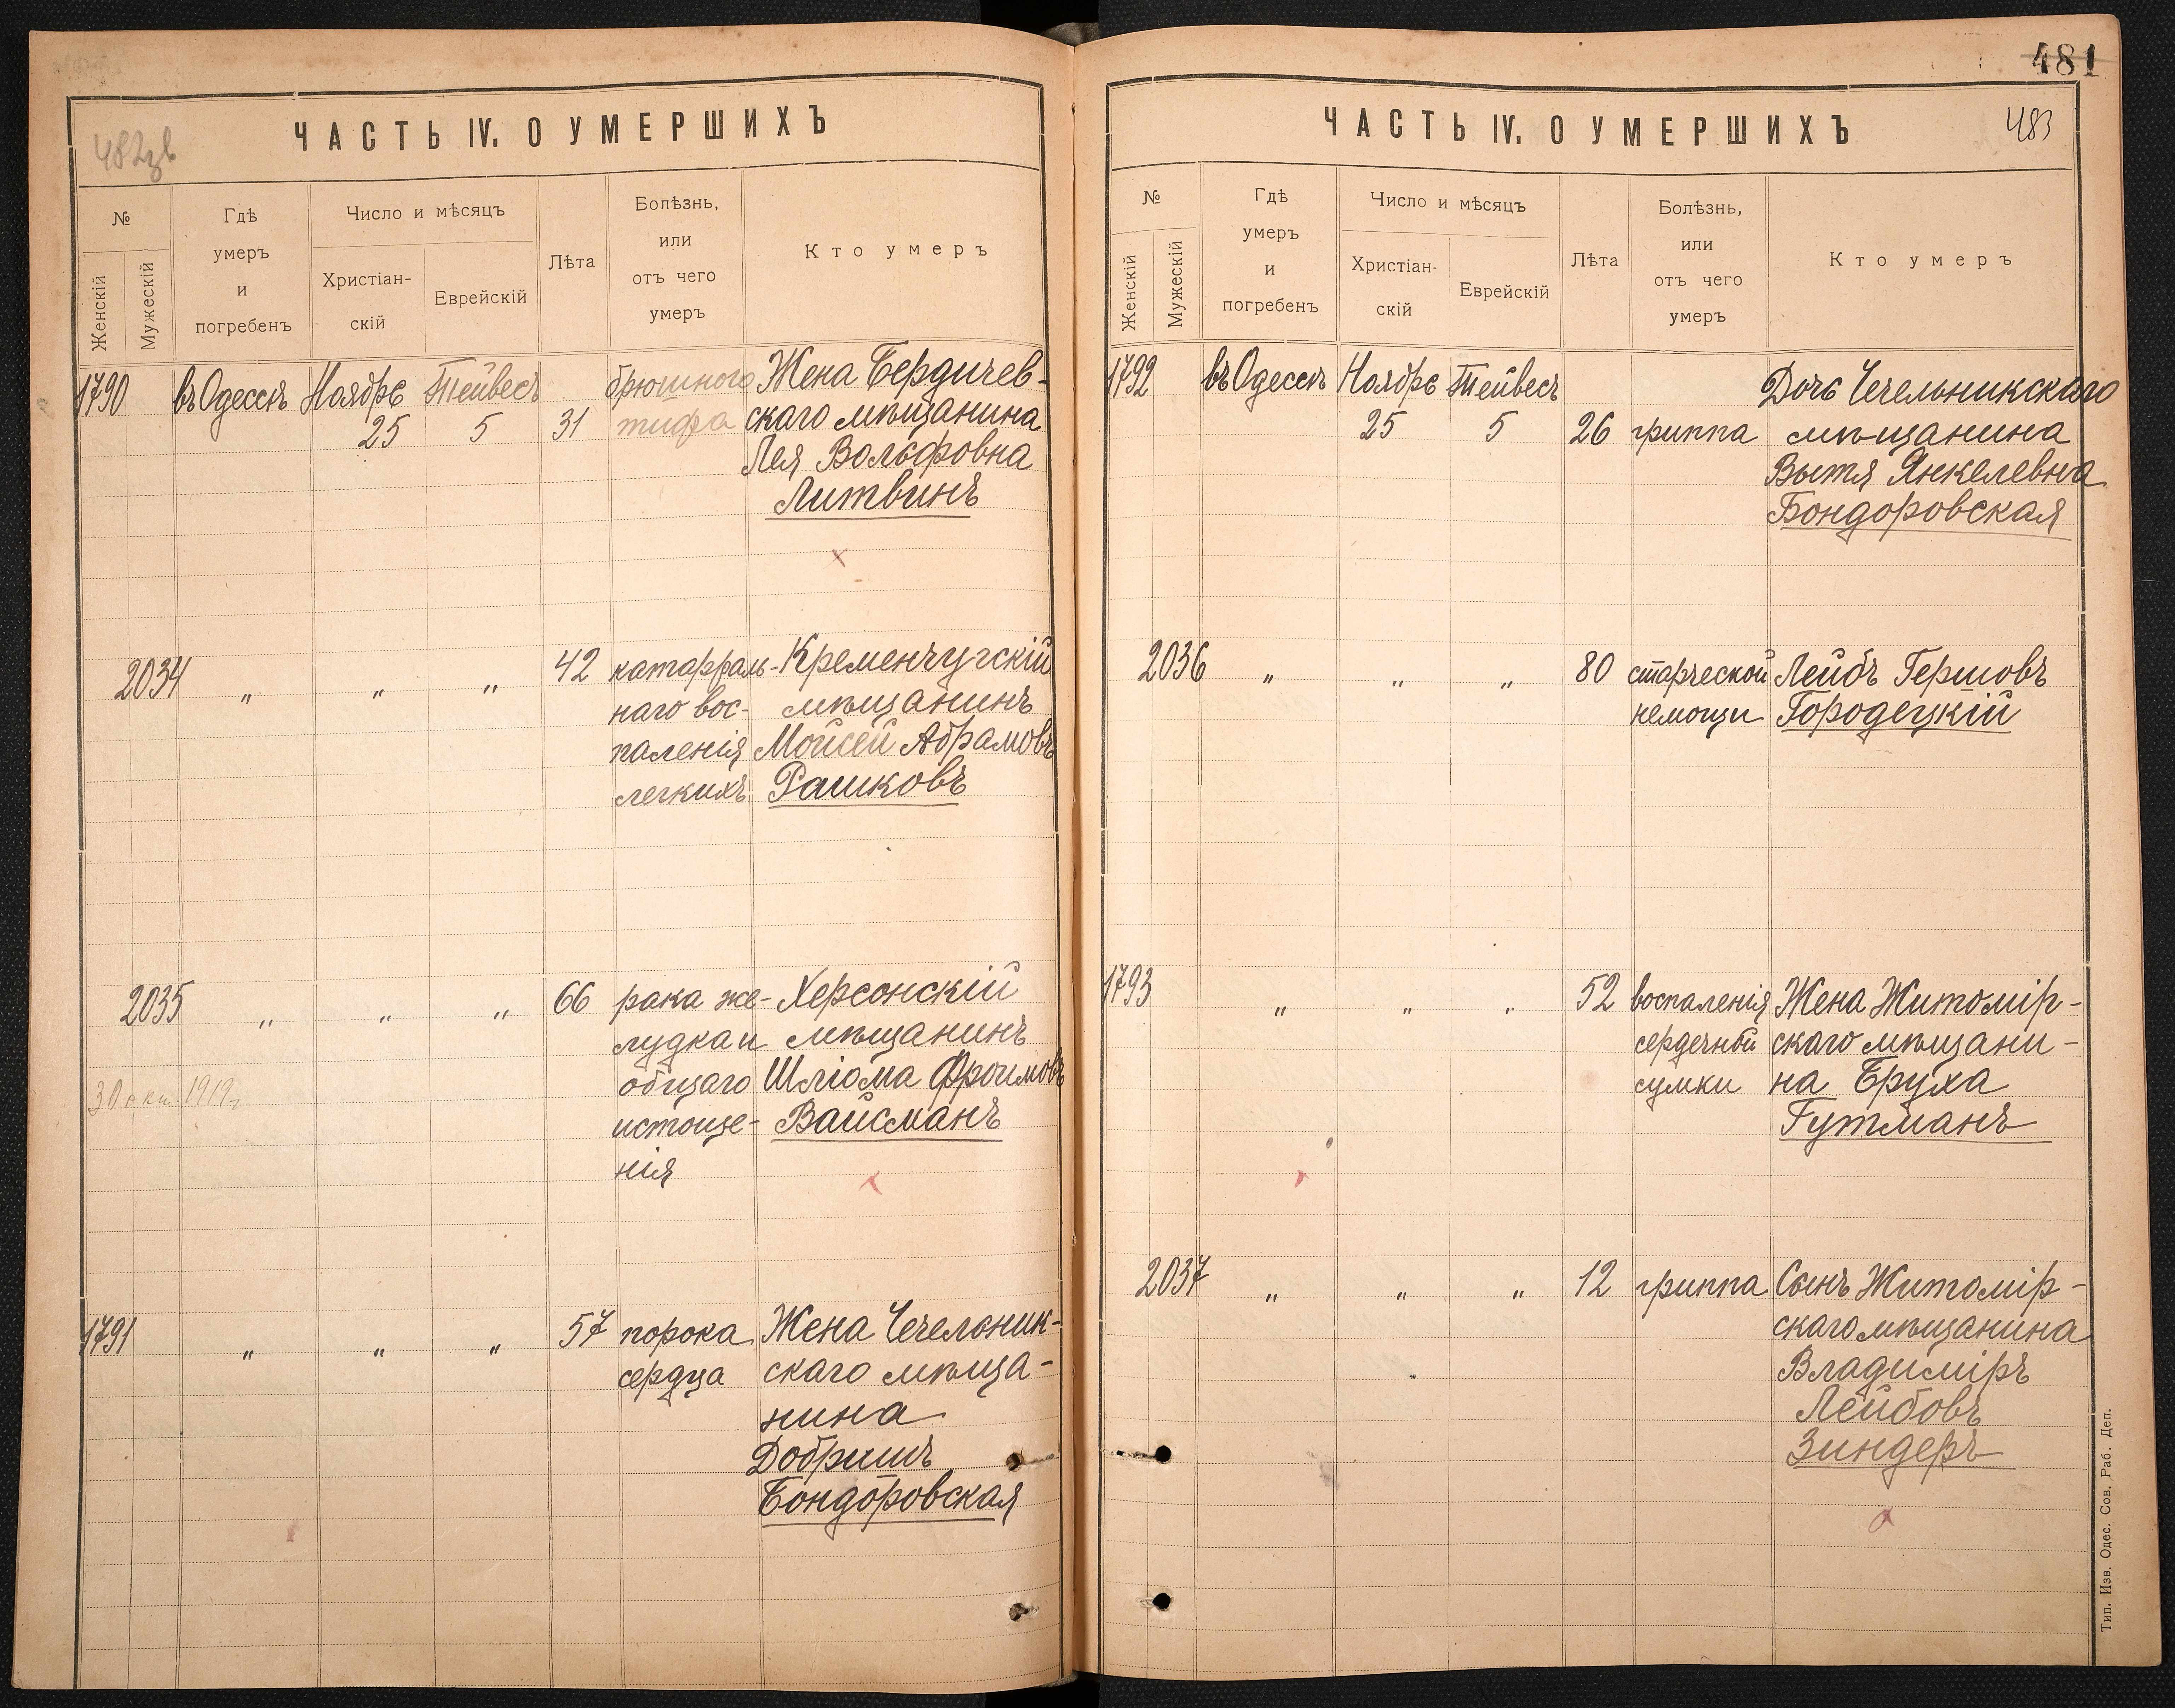 482зв
ЧАСТЬ IV. О УМЕРШИХЪ
№
Женскій
Мужескій
Гдѣ
умеръ
и
погребенъ
Число и мѣсяцъ
Христіан-
скій
Еврейскій
Лѣта
Болѣзнь,
или
отъ чего
умеръ
Кто умеръ
1790 въ Одессѣ Ноябре Тейвесъ брюшного Жена Бердичев-
25 5 31 тифа скаго мѣщанина
Лея Вольфовна
Литвинъ
2034 " " " 42 катарраль- Кременчугскій
наго вос- мѣщанинъ
паленія Мойсей Абрамовъ
легкихъ Рашковъ
2035 " " " 66 рака же- Херсонскій
лудка и мѣщанинъ
30 окт. 1919г. общаго Шліома Фроимовъ
истоще- Вайсманъ
нія
1791 " " " 57 порока Жена Чечельник-
сердца скаго мѣща-
нина
Добришъ
Бондоровская
481
483
ЧАСТЬ IV. О УМЕРШИХЪ
№
Женскій
Мужескій
Гдѣ
умеръ
и
погребенъ
Число и мѣсяцъ
Христіан-
скій
Еврейскій
Лѣта
Болѣзнь,
или
отъ чего
умеръ
Кто умеръ
1792 въ Одессѣ Ноябре Тейвесъ Дочь Чечельникскаго
25 5 26 гриппа мѣщанина
Вытя Янкелевна
Бондоровская
2036 " " " 80 старческой Лейбъ Гершовъ
немощи Городецкій
1793 " " " 52 воспаленія Жена Житомір-
сердечной скаго мѣщани-
сумки на Бруха
Гутманъ
2037 " " " 12 гриппа Сынъ Житомір-
скаго мѣщанина
Владиміръ
Лейбовъ
Зиндеръ
Тип. Изв. Одес. Сов. Раб. Деп.